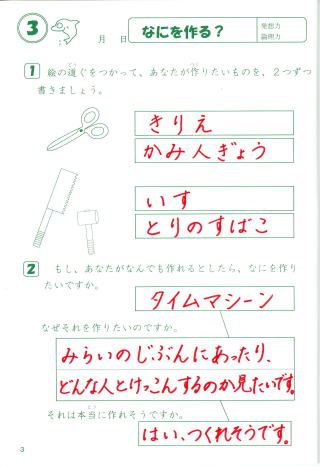 3
月 日
なにを作る？
発想力
論理力
1 絵の道ぐをつかって、あなたが作りたいものを、2つずつ
書きましょう。
きりえ
かみ人ぎょう
いす
とりのすばこ
2 もし、あなたがなんでも作れるとしたら、なにを作り
たいですか。
タイムマシーン
なぜそれを作りたいのですか。
みらいのじぶんにあったり、
どんな人とけっこんするのか見たいです。
それは本当に作れそうですか。
はい、つくれそうです。
3